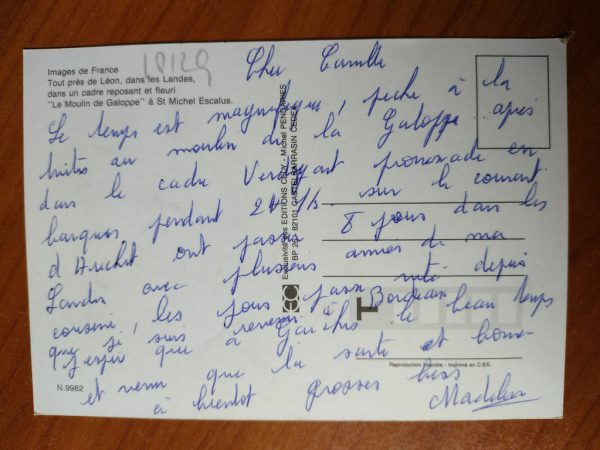 Images de France
Tout près de Léon, dans les Landes,
dans un cadre reposant et fleuri
"Le Moulin de Galoppe" à St Michel Escalus.
18129
Cher Camille
Le temps est magnifique, peche à la
truites au moulin de la Galoppe après
dans le cadre Verdoyant promenade en
barques pendant 2H 1/2 sur le courant
d'Huchet ont passe 8 jours dans les
Landes avec plusieurs amies de ma
cousine, les jours passe vite depuis
que je suis revenu à Bordeaux
J'espere qu'à Gaichis le beau temps
et venu que la sante et bonne
à bientot grosses bises
Madeleine
Exclusivité des EDITIONS CELY - Michel PENDARIES
BP 263 82101 CASTELSARRASIN CEDEX
N.9962
Reproduction Interdite - Imprimé en C.E.E.